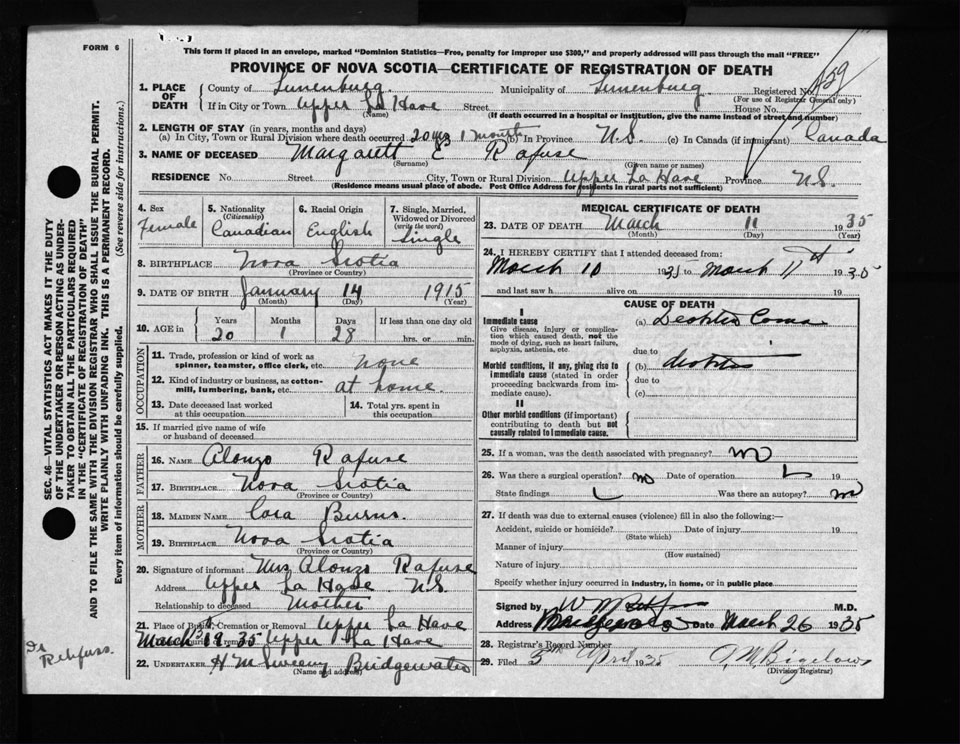 FORM 6
This form if placed in an envelope, marked "Dominion Statistics—Free, penalty for improper use $300," and properly addressed will pass through the mail "FREE"
PROVINCE OF NOVA SCOTIA—CERTIFICATE OF REGISTRATION OF DEATH
1. PLACE OF DEATH
County of Lunenburg Municipality of Lunenburg Registered No. 459
(For use of Registrar General only)
If in City or Town Upper La Have Street House No.
(Name) (If death occurred in a hospital or institution, give the name instead of street and number)
2. LENGTH OF STAY (in years, months and days)
(a) In City, Town or Rural Division where death occurred 20 yrs 1 month (b) In Province N.S. (c) In Canada (if immigrant) Canada
3. NAME OF DECEASED Margarett E Rafuse
(Surname) (Given name or names)
RESIDENCE No. Street City, Town or Rural Division Upper La Have Province N.S.
(Residence means usual place of abode. Post Office Address for residents in rural parts not sufficient)
4. Sex Female
5. Nationality (Citizenship) Canadian
6. Racial Origin English
7. Single, Married, Widowed or Divorced (write the word) Single
8. BIRTHPLACE Nova Scotia
(Province or Country)
9. DATE OF BIRTH January 14 1915
(Month) (Day) (Year)
10. AGE in Years Months Days If less than one day old
20 1 28 hrs. or min.
OCCUPATION
11. Trade, profession or kind of work as spinner, teamster, office clerk, etc. none
12. Kind of industry or business, as cotton-mill, lumbering, bank, etc. at home
13. Date deceased last worked at this occupation
14. Total yrs. spent in this occupation
15. If married give name of wife or husband of deceased
FATHER
16. NAME Alonzo Rafuse
17. BIRTHPLACE Nova Scotia
(Province or Country)
MOTHER
18. MAIDEN NAME Cora Burns.
19. BIRTHPLACE Nova Scotia
(Province or Country)
20. Signature of informant Mrs Alonzo Rafuse
Address Upper La Have N.S.
Relationship to deceased Mother
21. Place of Burial, Cremation or Removal Upper La Have
March 19 35 Upper La Have
22. UNDERTAKER H M Sweeny Bridgewater
(Name and address)
MEDICAL CERTIFICATE OF DEATH
23. DATE OF DEATH March 11 1935
(Month) (Day) (Year)
24. I HEREBY CERTIFY that I attended deceased from:
March 10 1935 to March 11th 1935
and last saw h alive on 19
CAUSE OF DEATH
I
Immediate cause
Give disease, injury or complication which caused death, not the mode of dying, such as heart failure, asphyxia, asthenia, etc.
(a) Coma
due to
Morbid conditions, if any, giving rise to immediate cause (stated in order proceeding backwards from immediate cause).
(b)
due to
(c)
II
Other morbid conditions (if important) contributing to death but not causally related to immediate cause.
25. If a woman, was the death associated with pregnancy? no
26. Was there a surgical operation? no Date of operation 19
State findings Was there an autopsy? no
27. If death was due to external causes (violence) fill in also the following:—
Accident, suicide or homicide? Date of injury 19
(State which)
Manner of injury
(How sustained)
Nature of injury
Specify whether injury occurred in industry, in home, or in public place
Signed by M.D.
Address Date March 26 1935
28. Registrar's Record Number
29. Filed 5th April 1935 A M Bigelow
(Division Registrar)
SEC. 46—VITAL STATISTICS ACT MAKES IT THE DUTY OF THE UNDERTAKER OR PERSON ACTING AS UNDERTAKER TO OBTAIN ALL THE PARTICULARS REQUIRED IN THE "CERTIFICATE OF REGISTRATION OF DEATH" AND TO FILE THE SAME WITH THE DIVISION REGISTRAR WHO SHALL ISSUE THE BURIAL PERMIT.
WRITE PLAINLY WITH UNFADING INK. THIS IS A PERMANENT RECORD.
Every item of information should be carefully supplied. (See reverse side for instructions.)
Dr Rehfuss.